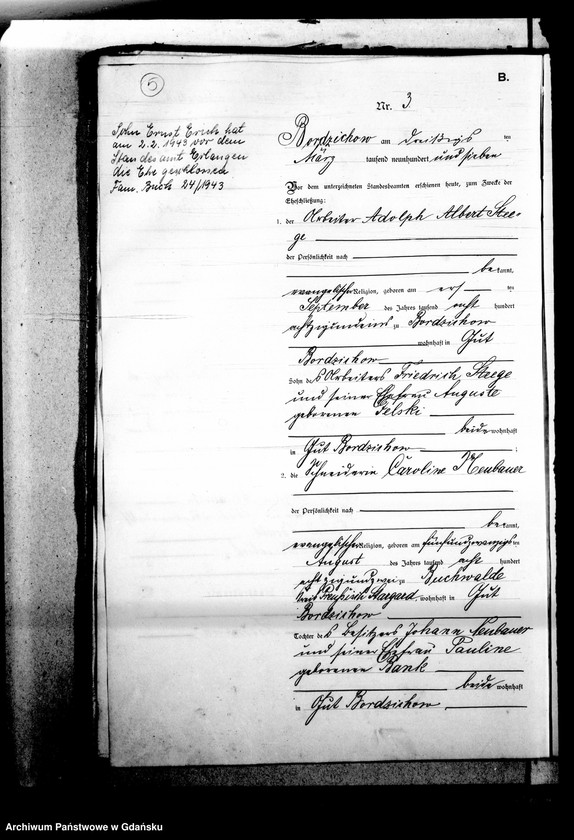 5
B.
Nr. 3
Sohn Ernst Erich hat
am 2.2.1943 vor dem
Standesamt Erlangen
die Ehe geschlossen
Fam. Buch 24/1943
Bordzichow am dreißigsten
März tausend neunhundert und sieben
Vor dem unterzeichneten Standesbeamten erschienen heute, zum Zwecke der
Eheschließung:
1. der Arbeiter Adolph Albert Stee-
ge
der Persönlichkeit nach
bekannt,
evangelischer Religion, geboren am ersten
September des Jahres tausend acht hundert
achtzigundeins zu Bordzichow
wohnhaft in Gut
Bordzichow
Sohn des Arbeiters Friedrich Steege
und seiner Ehefrau Auguste
geborenen Felski
beide wohnhaft
in Gut Bordzichow
2. die Schneiderin Caroline Neubauer
der Persönlichkeit nach
bekannt,
evangelischer Religion, geboren am fünfundzwanzigsten
August des Jahres tausend acht hundert
achtzigundzwei zu Buchwalde
Kreis Preußisch Stargard, wohnhaft in Gut
Bordzichow
Tochter des Besitzers Johann Neubauer
und seiner Ehefrau Pauline
geborenen Bank
beide wohnhaft
in Gut Bordzichow
Archiwum Państwowe w Gdańsku